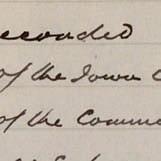 seconded
of the Town C
of the Comm